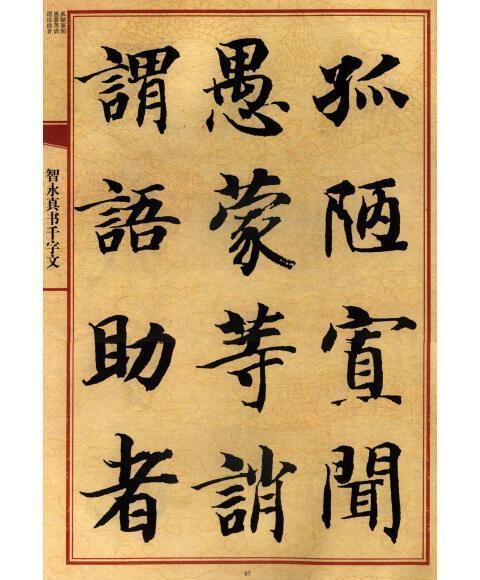 孤陋寡聞
愚蒙等誚
謂語助者
孤陋寡闻
愚蒙等诮
谓语助者
智永真书千字文
87